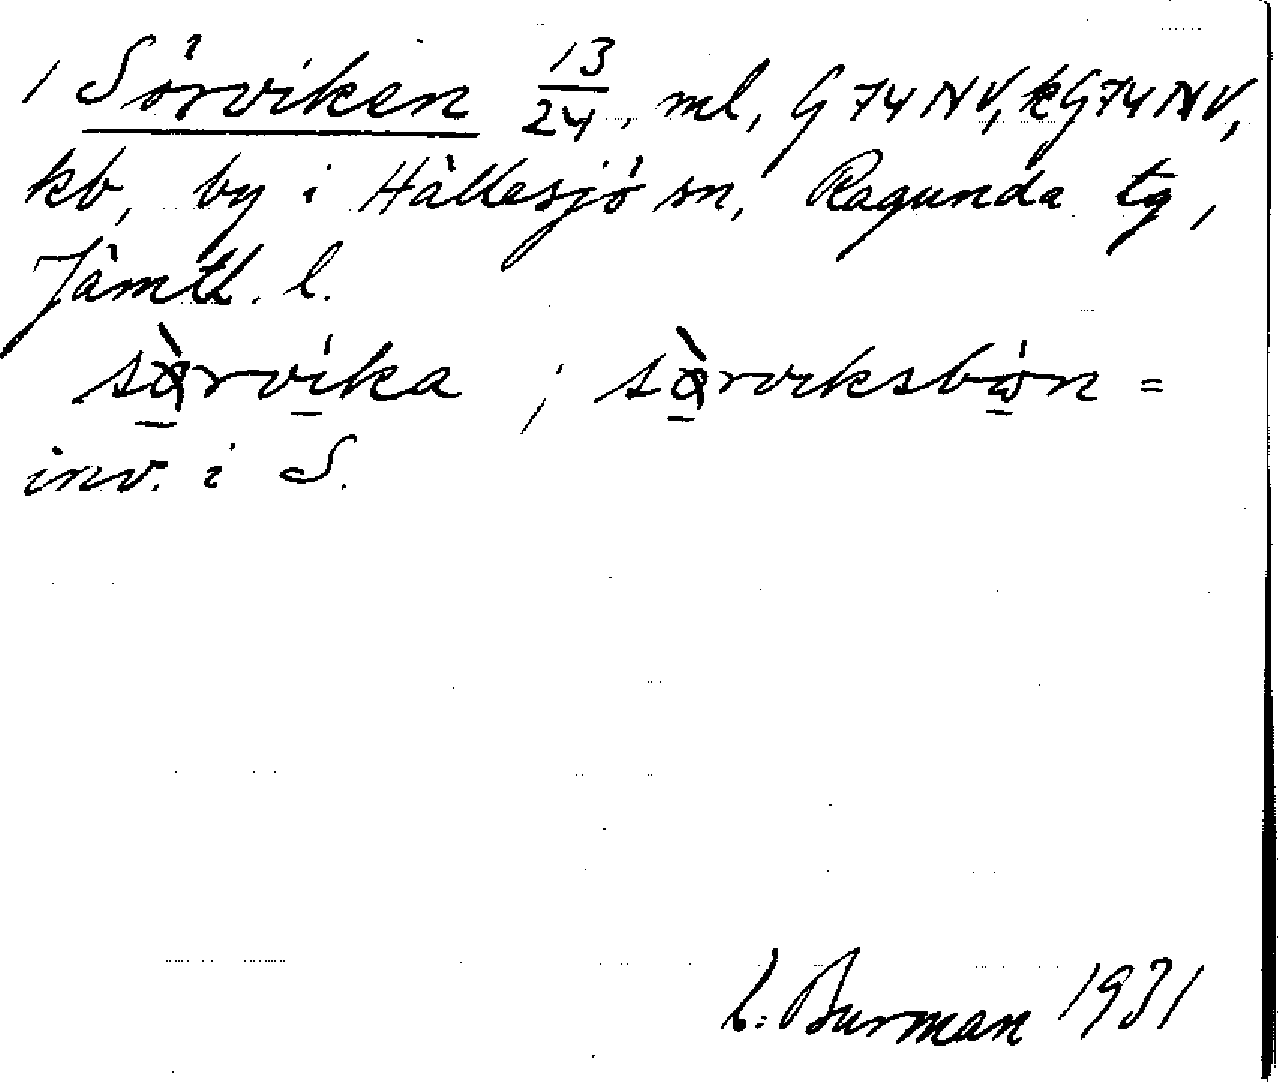 / Sörviken 13/24, ml, G 74 NV, kG 74 NV,
kb, by i Hällesjö sn, Ragunda tg,
Jämtl. l.
sɑ̀rvika ; sɑ̀rviksbön =
inv. i S.
L. Burman 1931